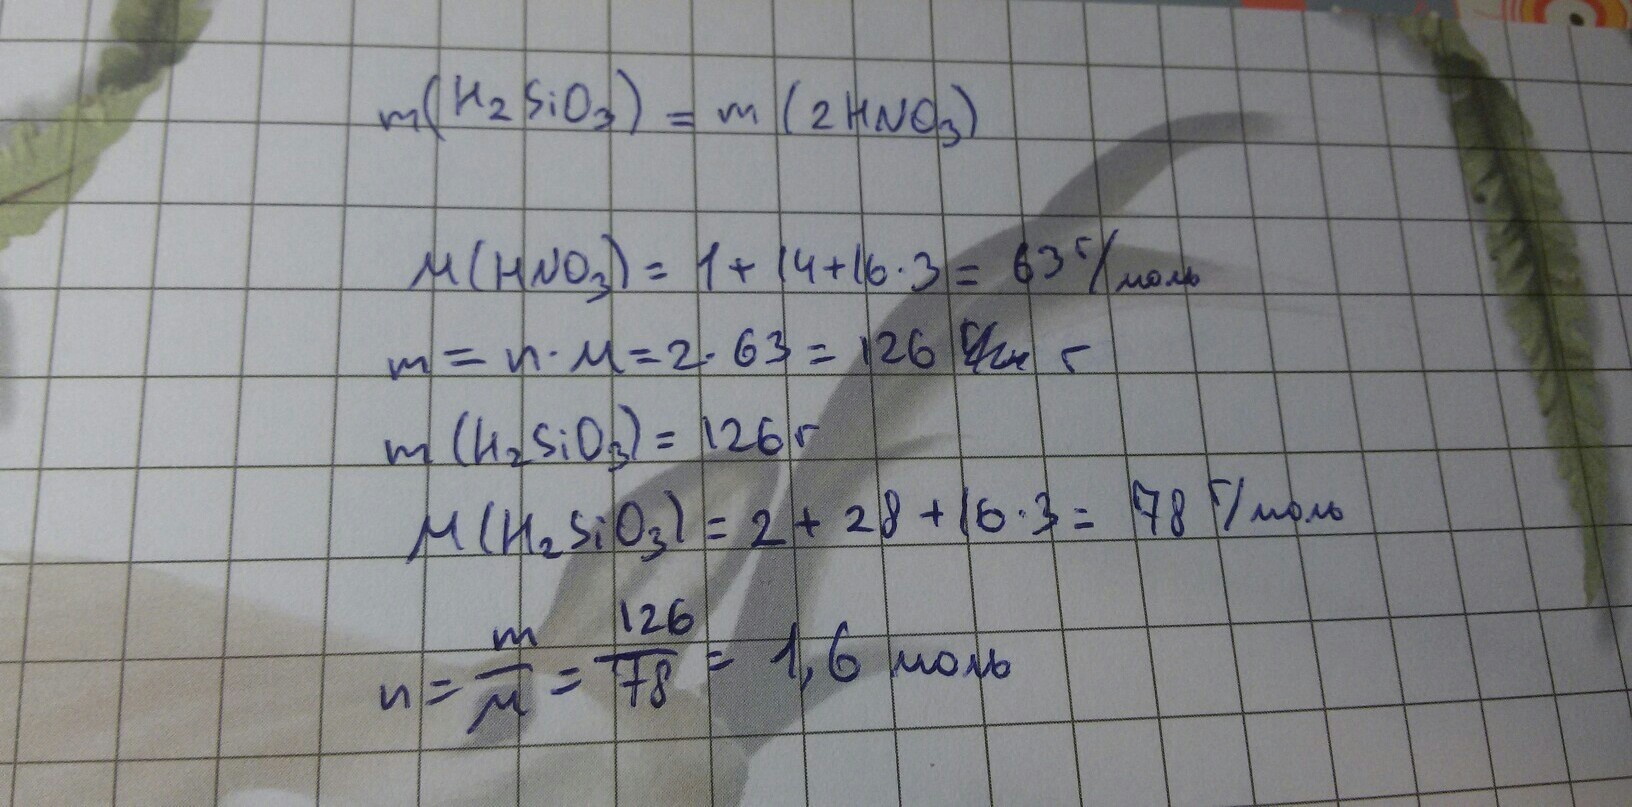 m(H₂SiO₃) = m(2HNO₃)
M(HNO₃) = 1 + 14 + 16·3 = 63 г/моль
m = n·M = 2·63 = 126 г
m(H₂SiO₃) = 126 г
M(H₂SiO₃) = 2 + 28 + 16·3 = 78 г/моль
n = m/M = 126/78 = 1,6 моль